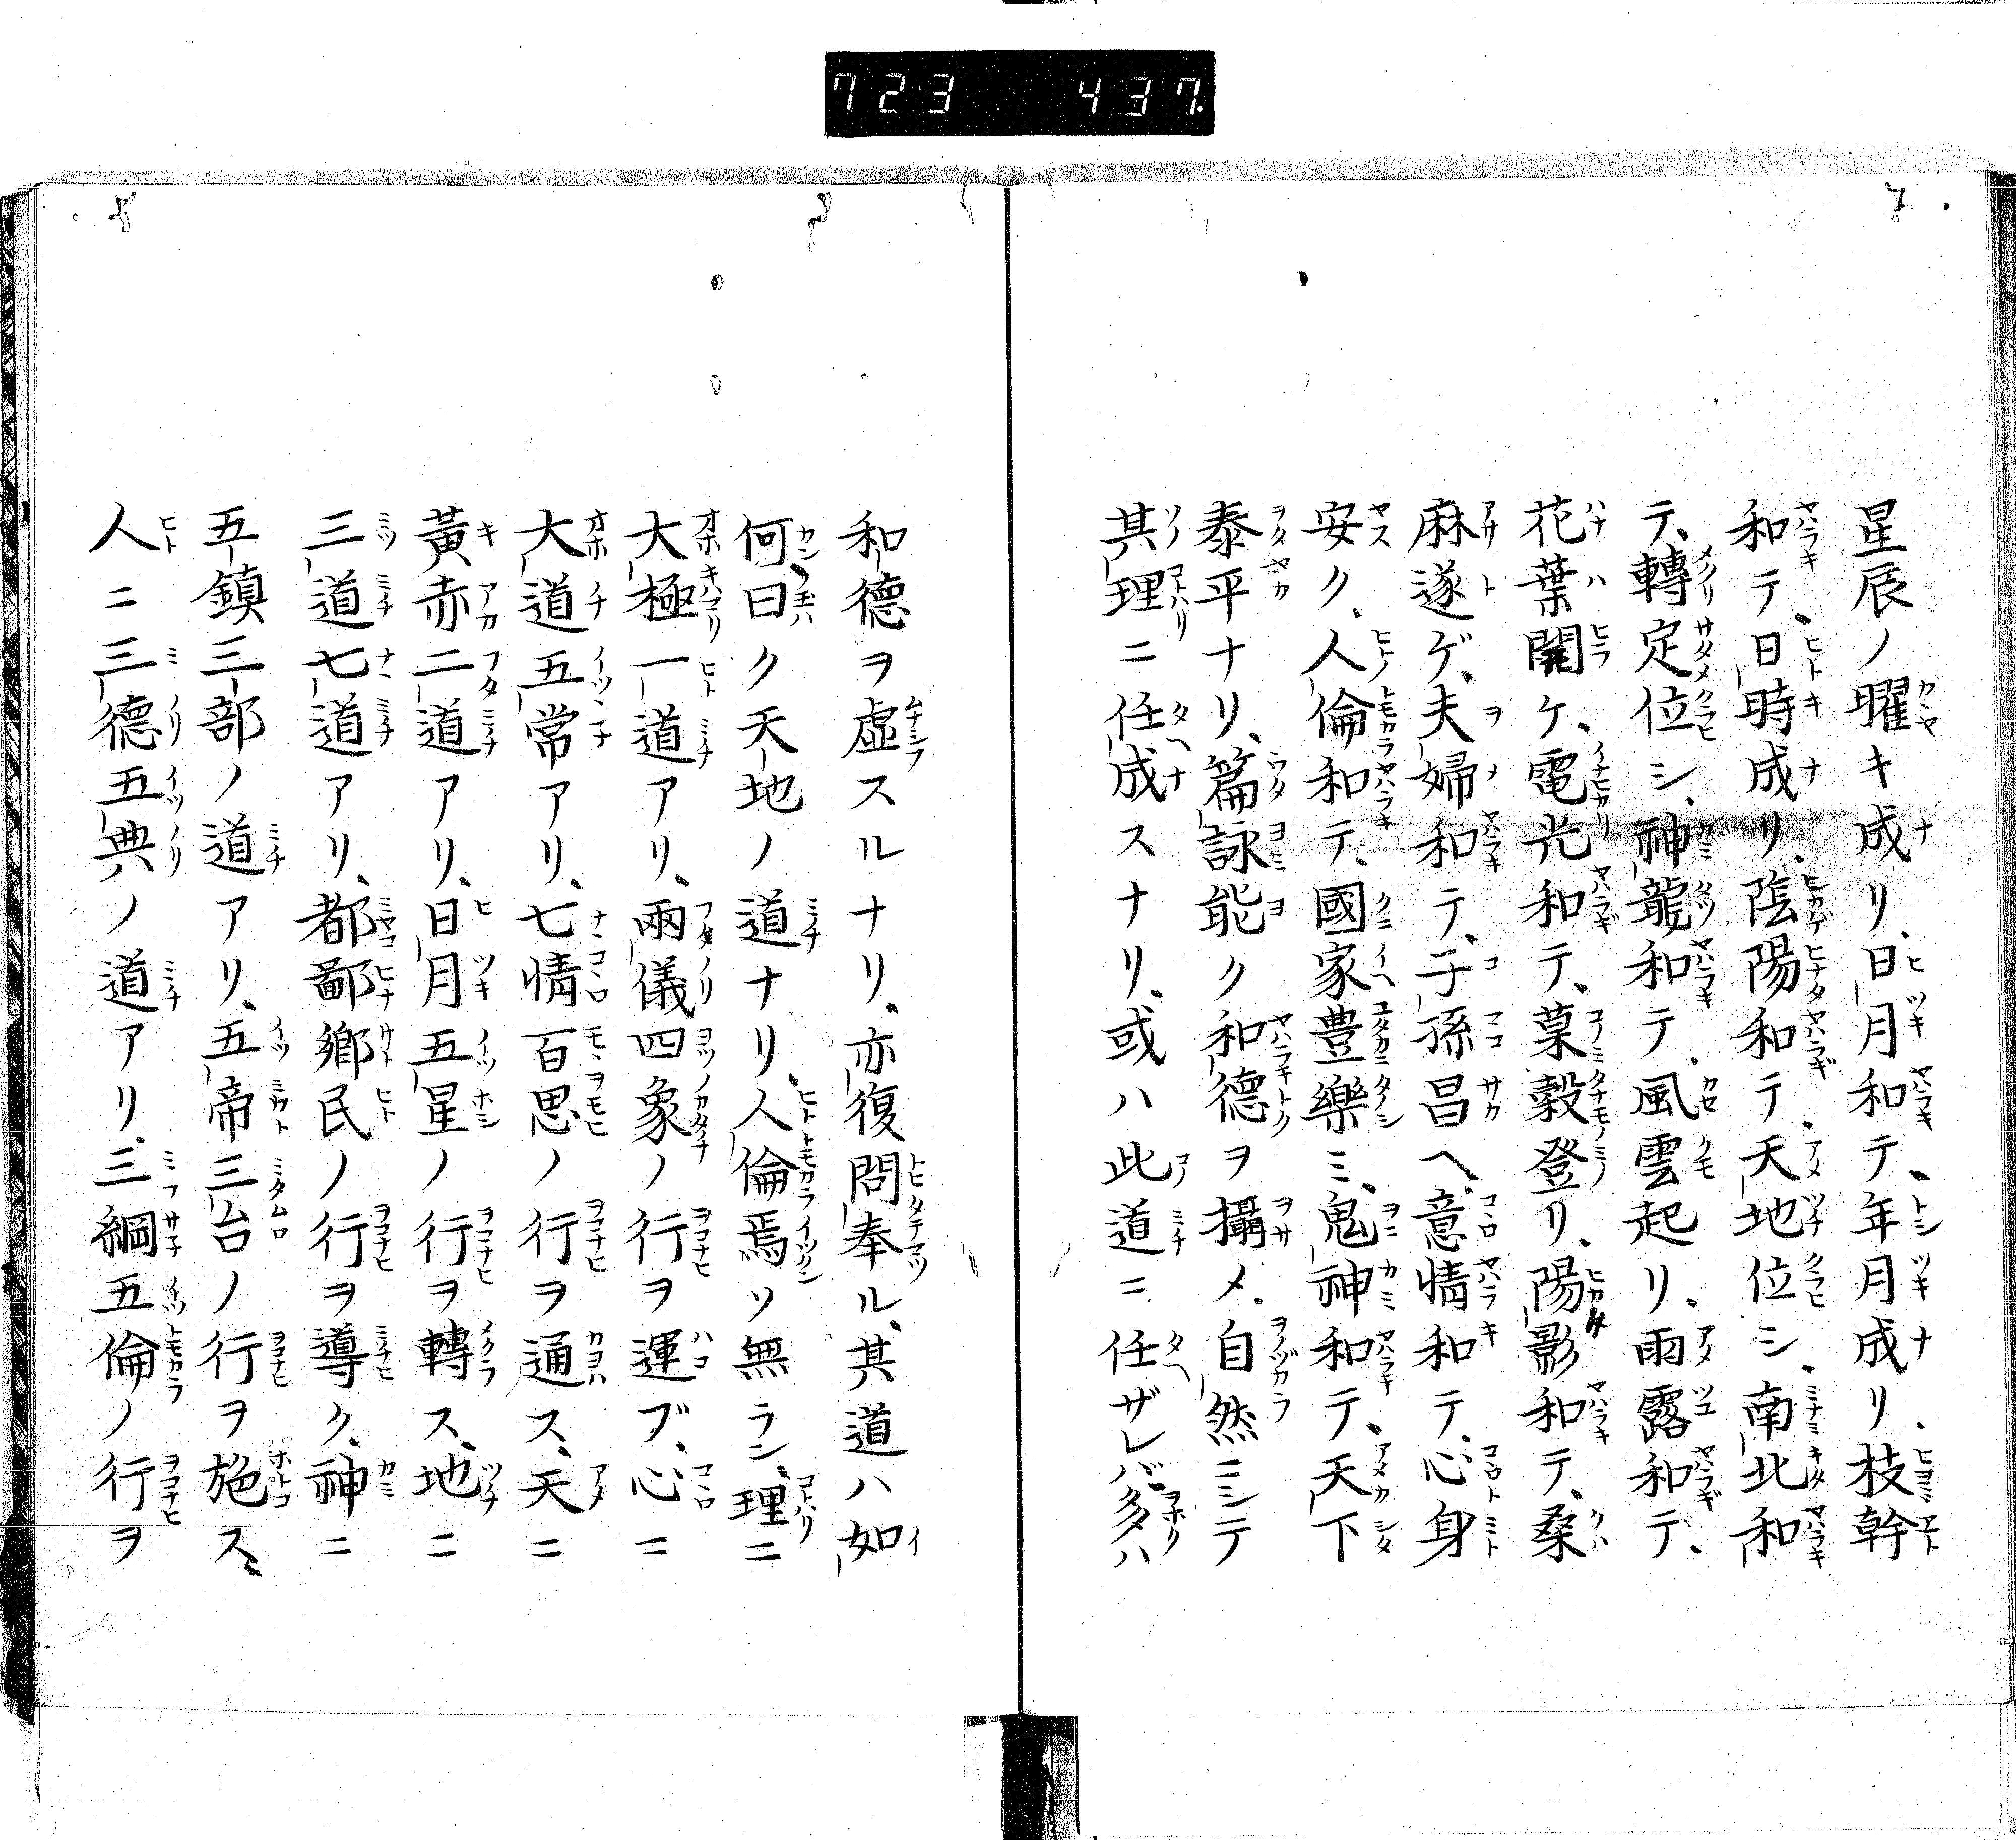 723 437
星辰ノ曜キ成リ、日月和テ、年月成リ、枝幹
和テ、日時成リ、陰陽和テ、天地位シ、南北和
テ、轉定位シ、神龍和テ、風雲起リ、雨露和テ、
花葉開ケ、電光和テ、菓穀登リ、陽影和テ、桑
麻遂ゲ、夫婦和テ、子孫昌ヘ、意情和テ、心身
安ク、人倫和テ、國家豊樂ミ、鬼神和テ、天下
泰平ナリ、篇詠能ク和德ヲ攝メ、自然ニシテ
其理ニ任成スナリ、或ハ此道ニ任ザレバ、多ハ
和德ヲ虛スルナリ、亦復問奉ル、其道ハ如
何、曰ク天地ノ道ナリ、人倫焉ソ無ラン、理ニ
大極一道アリ、兩儀四象ノ行ヲ運ブ、心ニ
大道五常アリ、七情百思ノ行ヲ通ス、天ニ
黃赤二道アリ、日月五星ノ行ヲ轉ス、地ニ
三道七道アリ、都鄙鄉民ノ行ヲ導ク、神ニ
五鎮三部ノ道アリ、五帝三台ノ行ヲ施ス、
人ニ三德五典ノ道アリ、三綱五倫ノ行ヲ